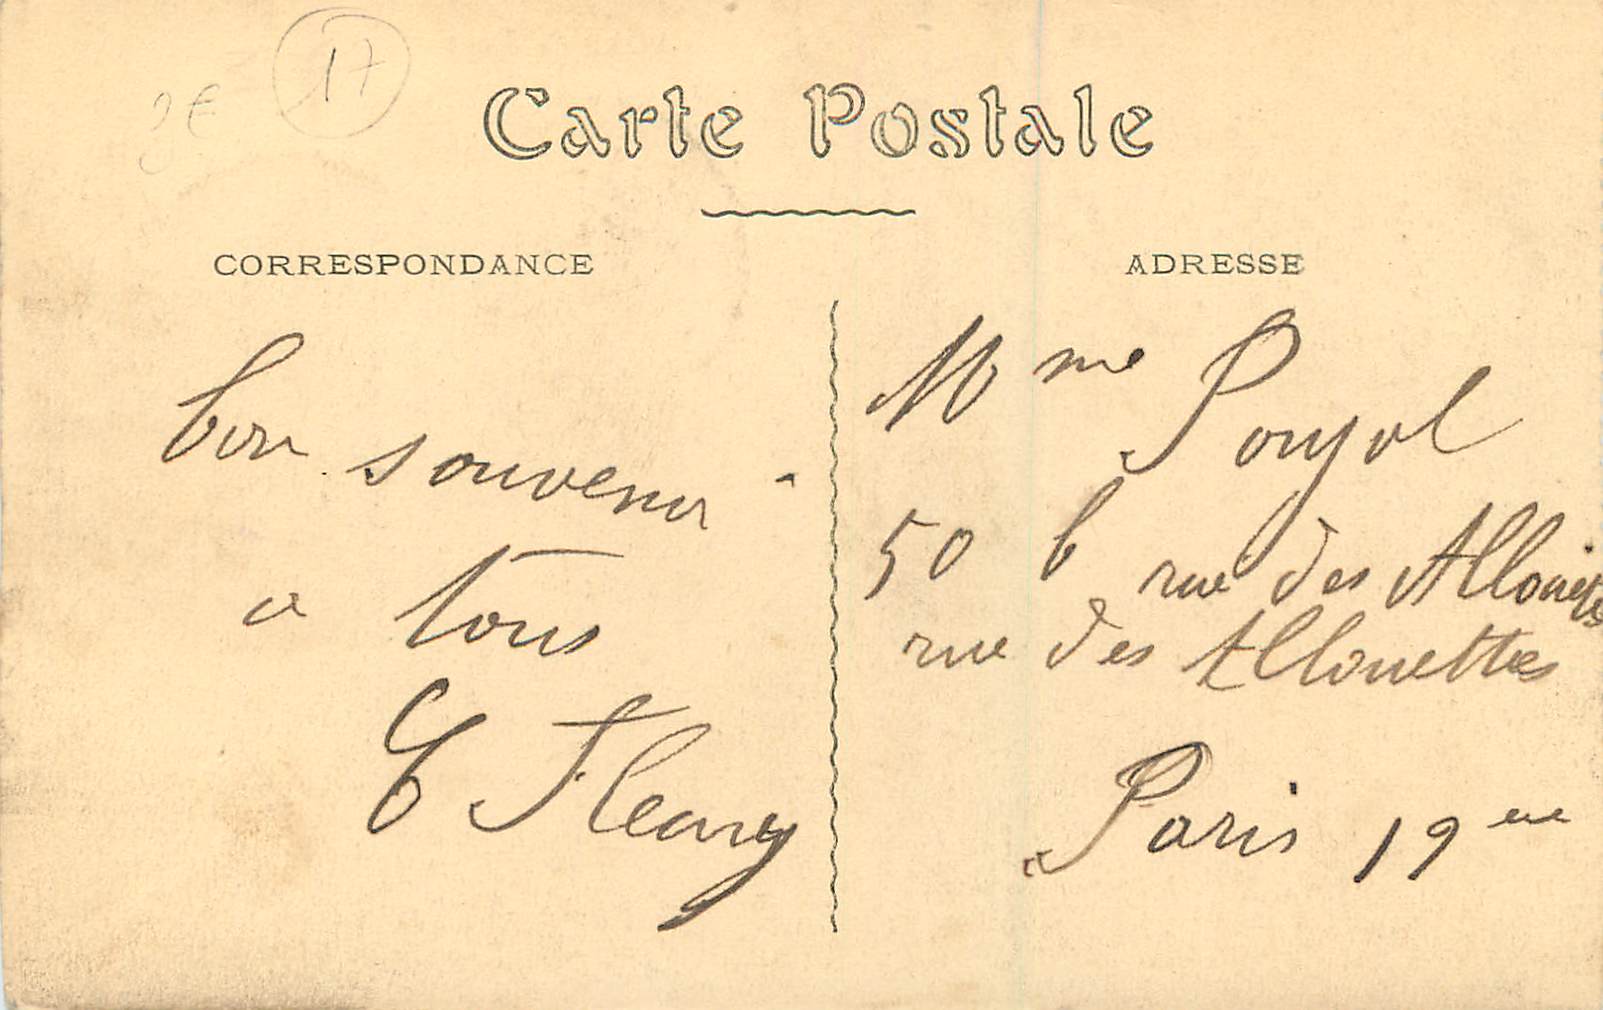 3€ 17
Carte Postale
CORRESPONDANCE
bon souvenir
a tous
E Fleury
ADRESSE
Mme Poujol
50 b rue des Allouettes
rue des Allouettes
Paris 19eme